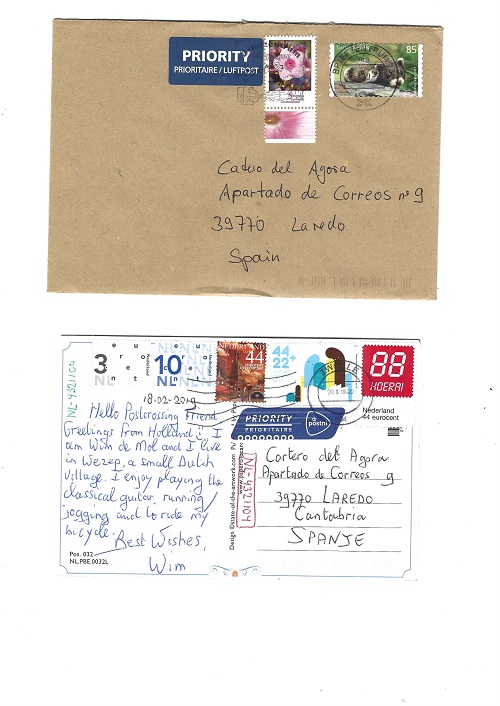 PRIORITY
PRIORITAIRE / LUFTPOST
85
Catero del Agora
Apartado de Correos nº 9
39770 Laredo
Spain
NL-4321104
3
10
NL
NL
44
44
22+
88
HOERA!
Nederland
44 eurocent
18-02-2019
Hello Postcrossing Friend
Greetings from Holland. I
am Wim de Mol and I live
in Wezep, a small Dutch
village. I enjoy playing the
classical guitar, running/
jogging and to ride my
bicycle.
Best Wishes,
Wim
Pos. 032
NL.PBE.0032L
PRIORITY
PRIORITAIRE
postnl
NL-4321104
Cortero del Agora
Apartado de Correos 9
39770 LAREDO
Cantabria
SPANJE